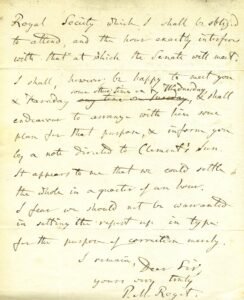 Royal Society which I shall be obliged
to attend, and the hour exactly interferes
with that at which the Senate will meet.
I shall, however be happy to meet you
some other time on Wednesday,
& Thursday any time on Tuesday, & shall
endeavour to arrange with him some
plan for that purpose, & inform you
by a note directed to Clement's Inn.
It appears to me that we could settle
the whole in a quarter of an hour.
I fear we should not be warranted
in setting the report up in type
for the purpose of correction merely.
I remain, Dear Sir,
yours very truly
P. M. Roget.